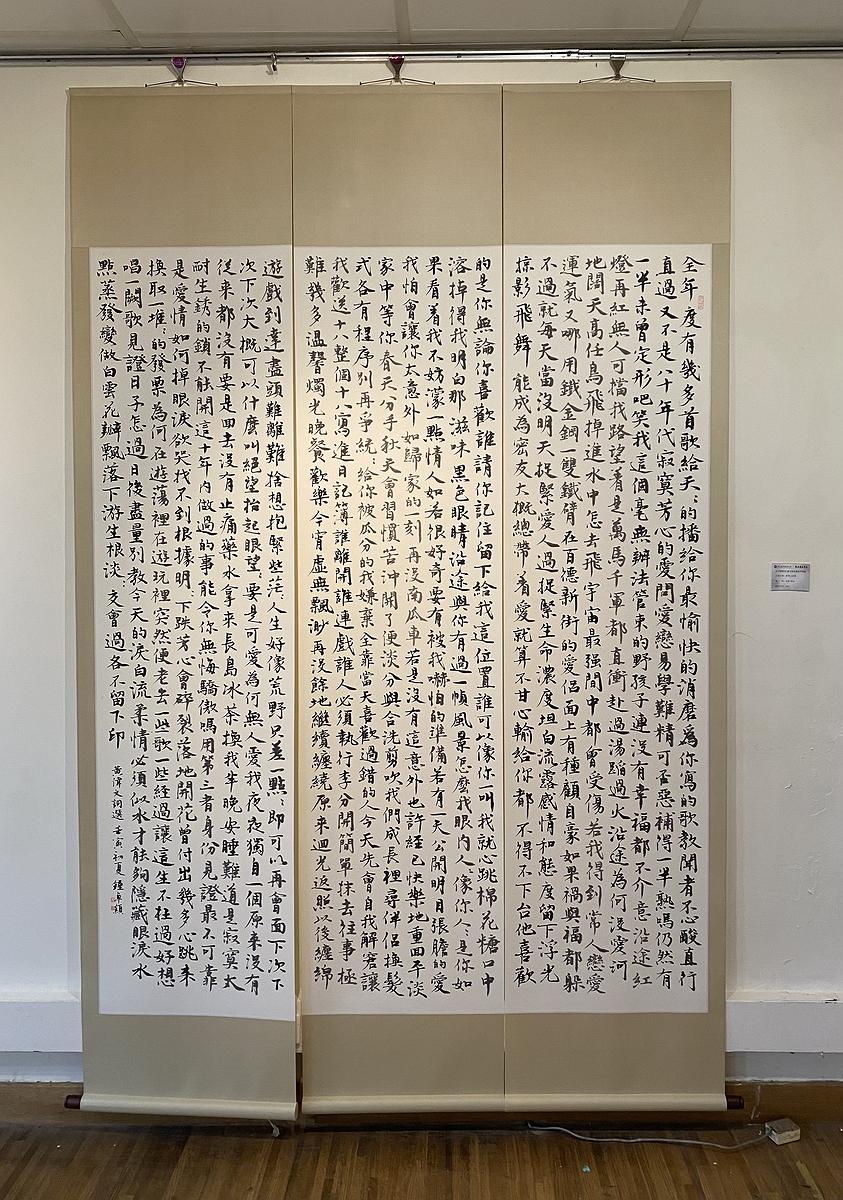 全年度有幾多首歌給天天的播給你最愉快的消磨為你寫的歌教聞者不心酸直行
直過又不是八十年代寂寞芳心的愛問愛戀易學難精可否惡補得一半熟嗎仍然有
一半未曾定形吧笑我這個毫無辦法管束的野孩子連沒有幸福都不介意沿途紅
燈再紅無人可擋我路望著是萬馬千軍都直衝赴過湯蹈過火沿途為何沒愛河
地闊天高任鳥飛掉進水中怎去飛宇宙最強間中都會受傷若我得到常人戀愛
運氣又哪用鐵金鋼一雙鐵臂在百德新街的愛侶面上有種顧自豪如果禍與福都躲
不過就每天當沒明天捉緊愛人過捉緊生命濃度坦白流露感情和態度留下浮光
掠影飛舞能成為密友大概總帶著愛就算不甘心輸給你都不得不下台他喜歡
的是你無論你喜歡誰請你記住留下給我這位置誰可以像你一叫我就心跳棉花糖口中
溶掉得我明白那滋味黑色眼睛沿途與你有過一幀風景怎麼我眼內人人像你人人是你如
果看着我不妨濛一點情人如若很好奇要有被我嚇怕的準備若有一天公開明目張膽的愛
我怕會讓你太意外如歸家的一刻再沒南瓜車若是沒有這意外也許經已快樂地重回平淡
家中等你春天分手秋天會習慣苦沖開了便淡分與合洗剪吹我們成長裡尋伴侶換髮
式各有程序別再爭統統給你被瓜分的我嫌棄全靠當天喜歡過錯的人今天先會自我解窘讓
我歡送十八整個十八寫進日記簿誰離開誰連戲誰人必須執行李分開簡單抹去往事極
難幾多溫馨燭光晚餐歡樂今宵虛無飄渺再沒餘地繼續纏繞原來迴光返照以後纏綿
遊戲到達盡頭難離難捨想抱緊些茫茫人生好像荒野只差一點點即可以再會面下次下
次下次大概可以什麼叫絕望抬起眼望望要是可愛為何無人愛我夜夜獨自一個原來沒有
從來都沒有要是回去沒有止痛藥水拿來長島冰茶換我半晚安睡難道是寂寞太
耐生銹的鎖不能開這十年內做過的事能令你無悔驕傲嗎用第三者身份見證最不可靠
是愛情如何掉眼淚欲哭找不到根據明明下跌芳心會碎裂落地開花曾付出幾多心跳來
換取一堆堆的發票為何在遊蕩裡在遊玩裡突然便老去一些歌一些經過讓這一生不枉過好想
唱一闕歌見證日子怎過日後盡量別教今天的淚白流柔情必須似水才能夠隱藏眼淚水
點蒸發變做白雲花瓣飄落下游生根淡淡交會過各不留下印
黃偉文詞選壬寅初夏鍾卓穎